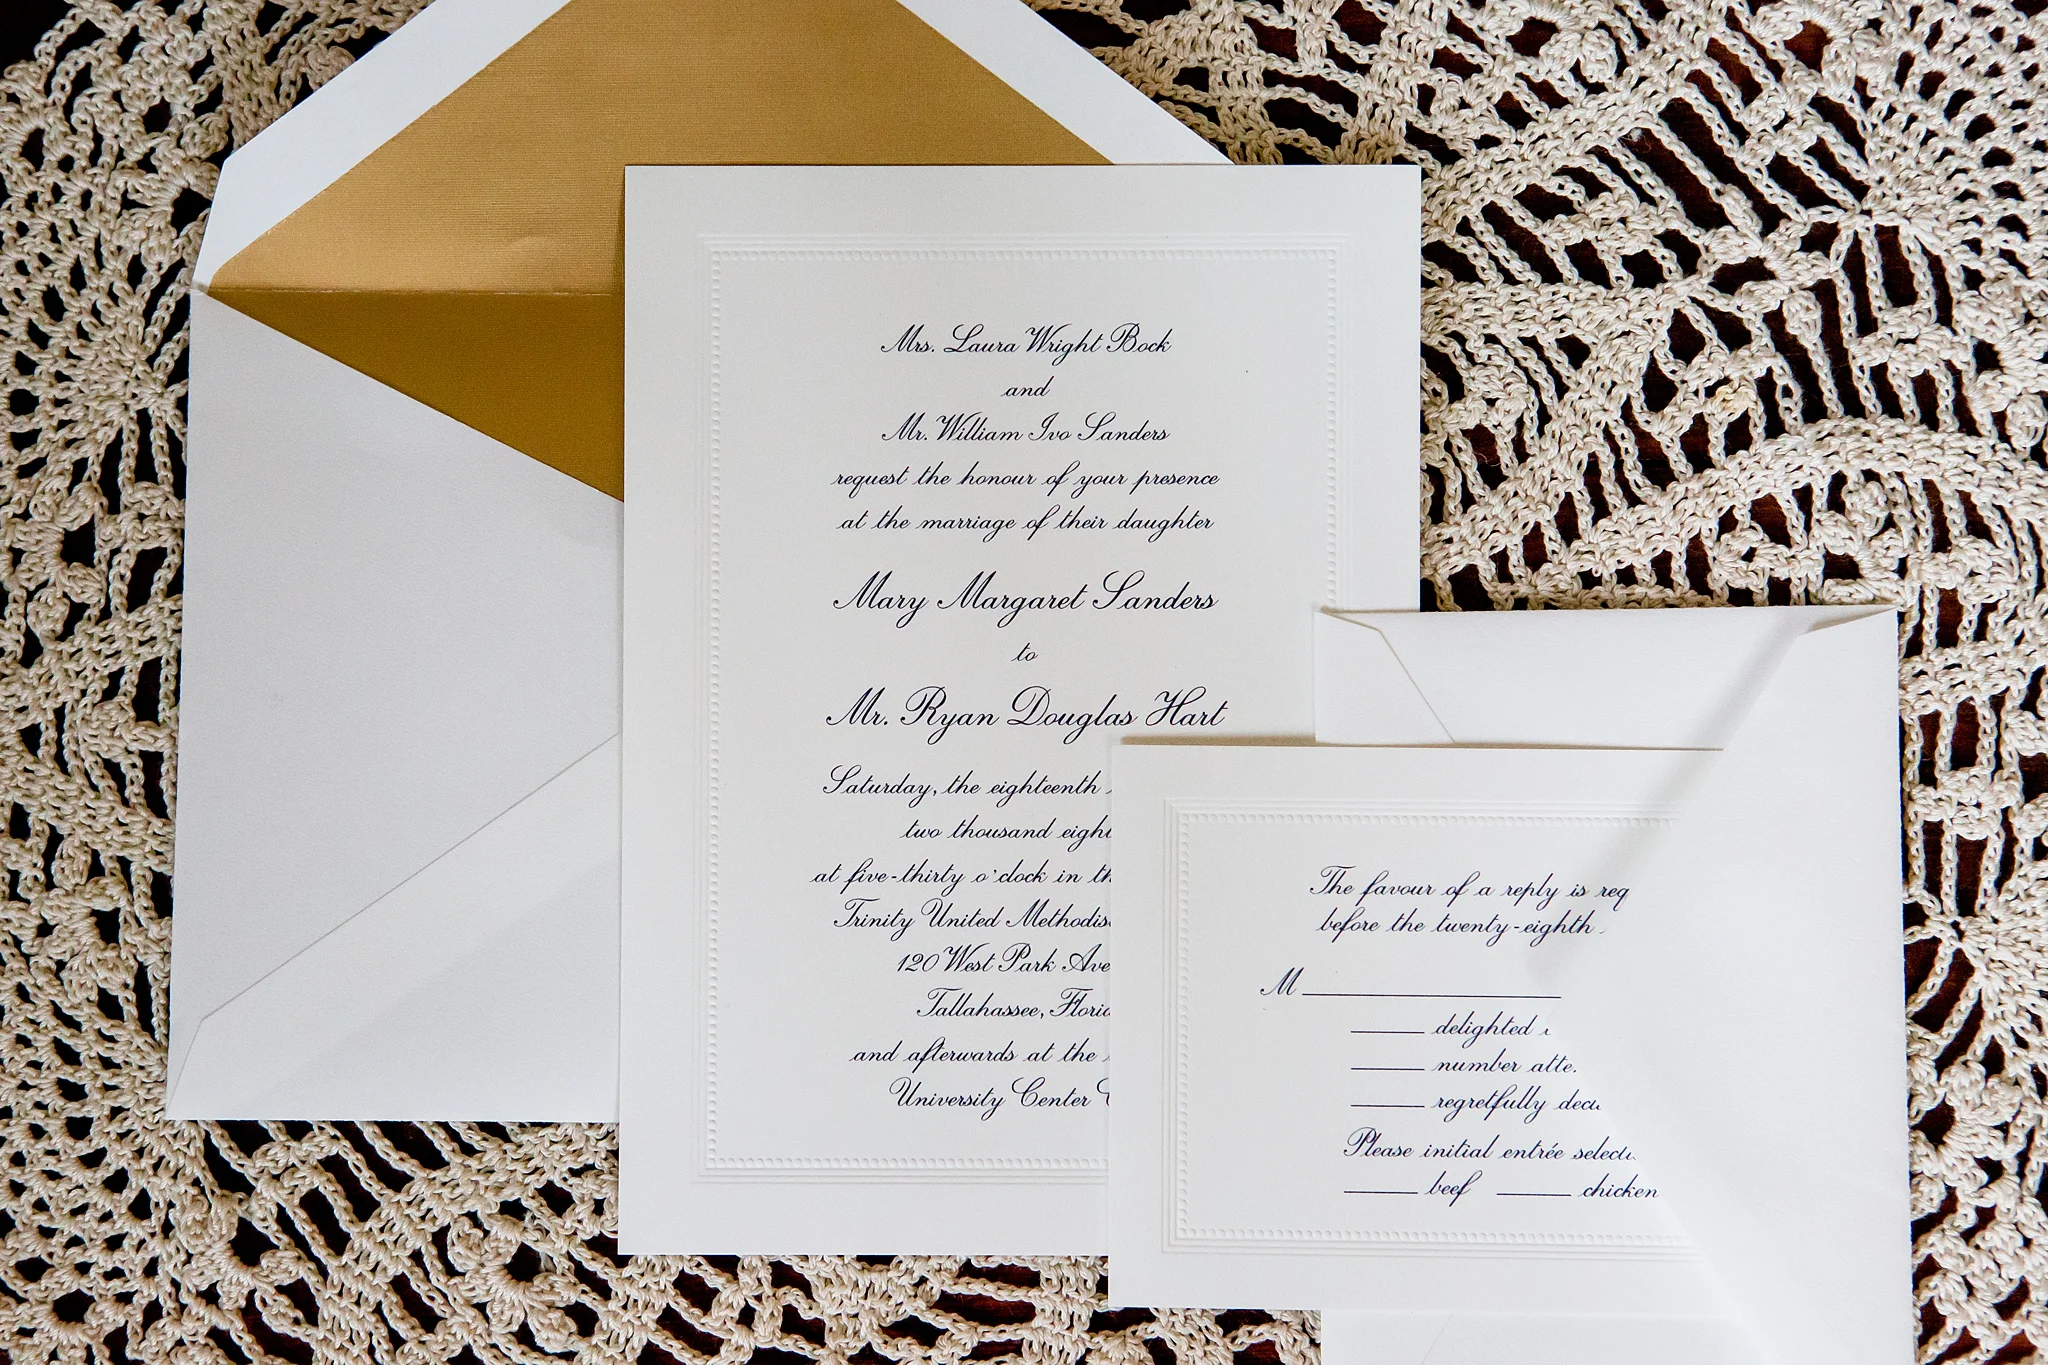 Mrs. Laura Wright Bock
and
Mr. William Ivo Sanders
request the honour of your presence
at the marriage of their daughter
Mary Margaret Sanders
to
Mr. Ryan Douglas Hart
Saturday, the eighteenth
two thousand
at five-thirty o'clock in
Trinity United
120 West Park
Tallahassee,
and afterwards at the
University Center
The favour of a reply is
before the twenty-eighth
M
delighted
number
regretfully
Please initial entrée
beef chicken